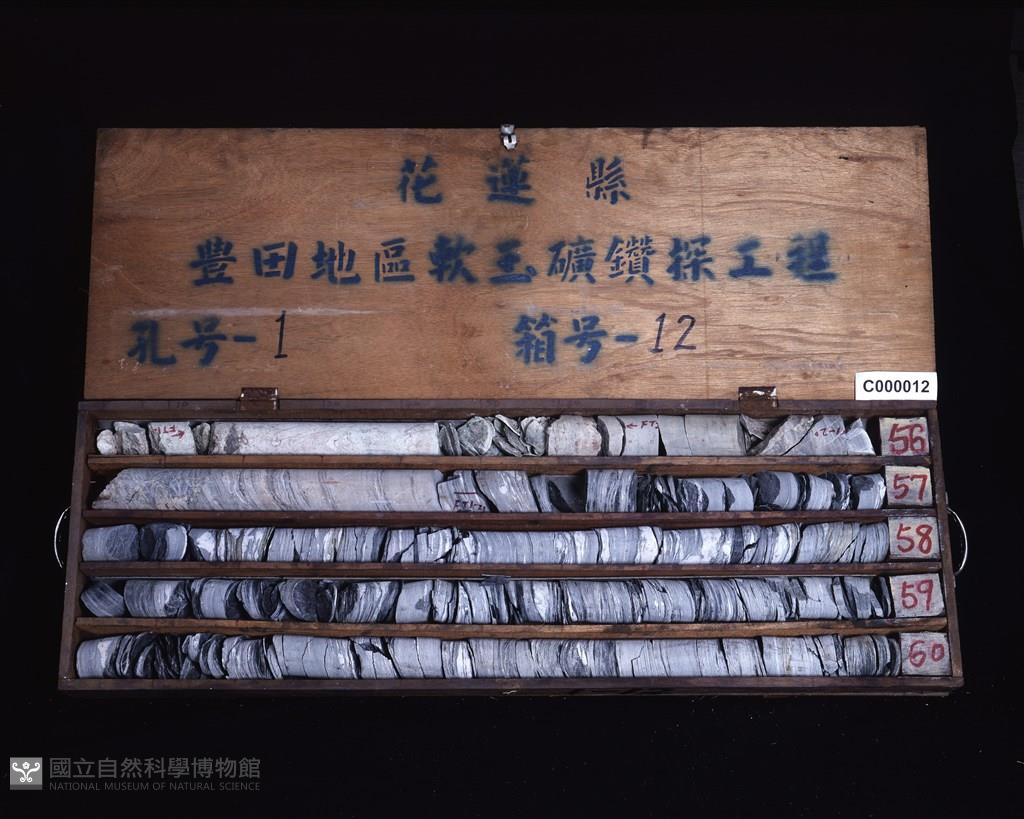 花蓮縣
豊田地區軟玉礦鑽探工程
孔号-1 箱号-12
C000012
56
57
58
59
60
國立自然科學博物館
NATIONAL MUSEUM OF NATURAL SCIENCE